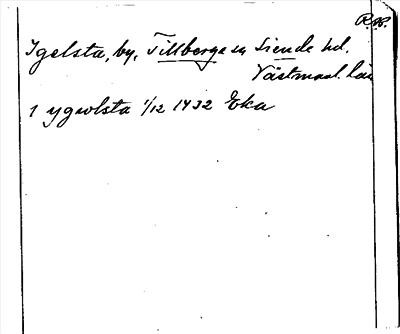 R.A.P.
Igelsta, by, Tillberga sn Siende hd.
Västmanl. län
1 ygwlsta 1/12 1432 Eka